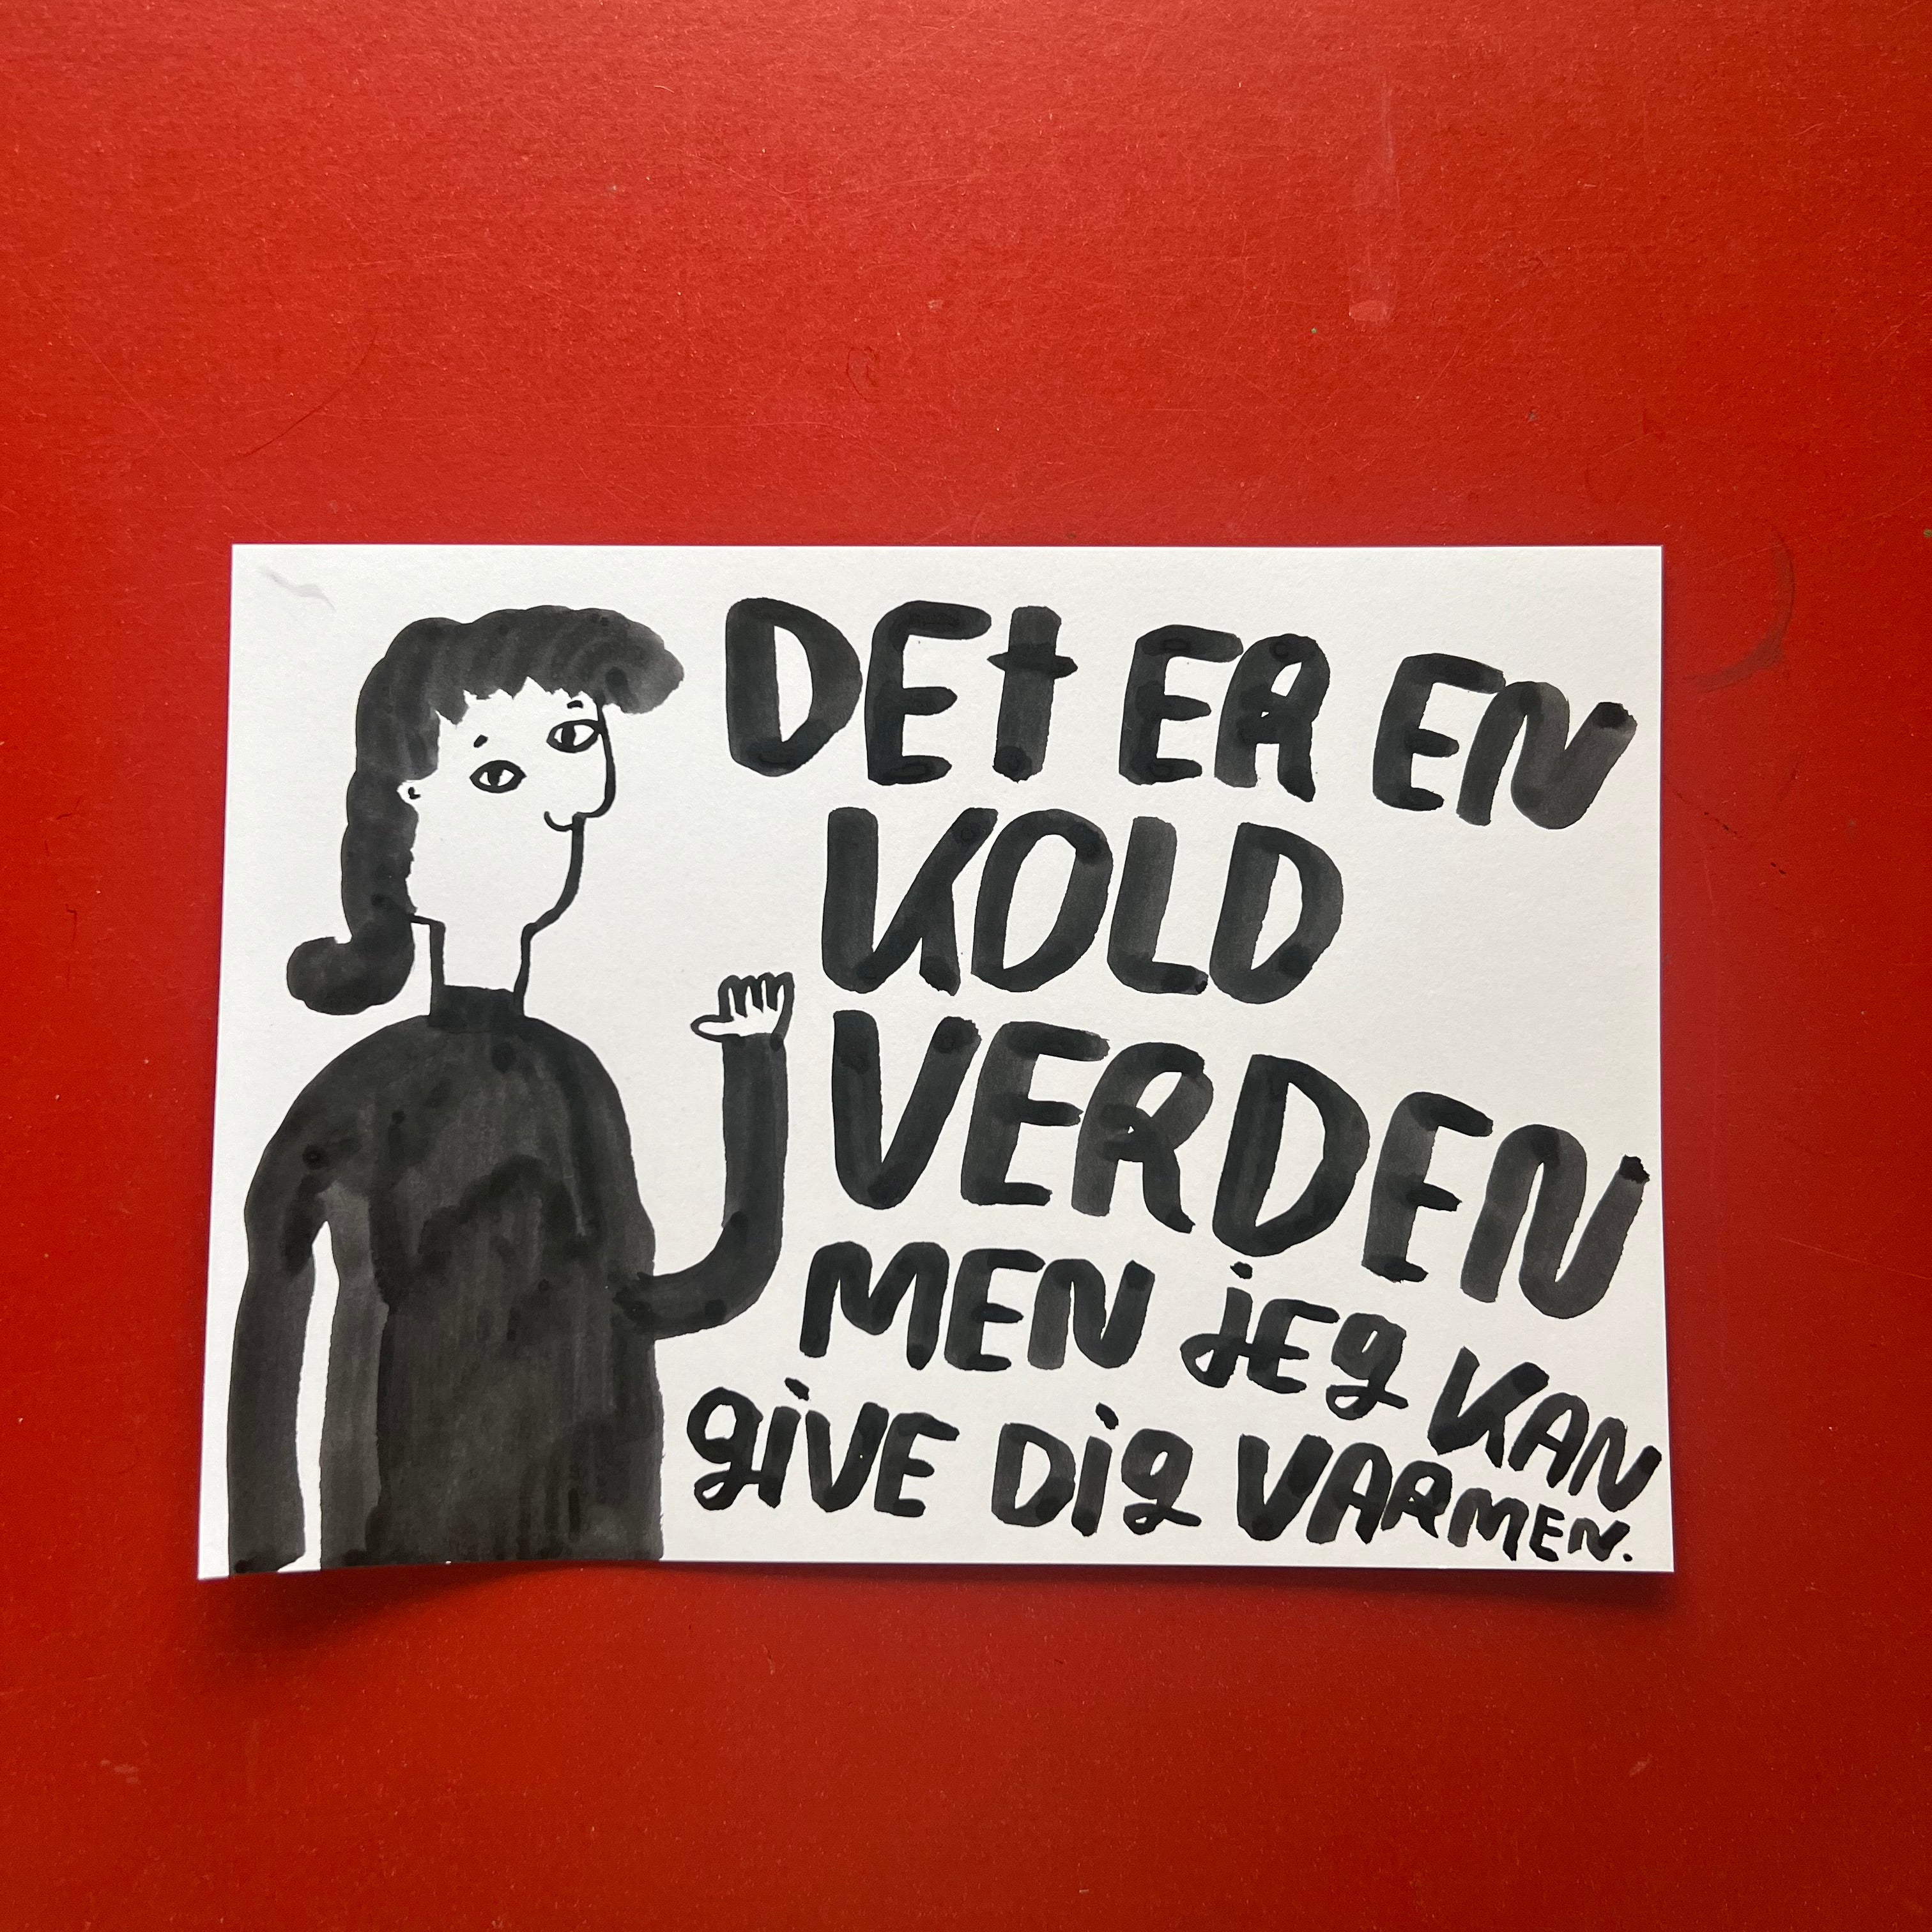 DEt ER EN
KOLD
VERDEN
MEN jEg KAN
giVE Dig VARMEN.